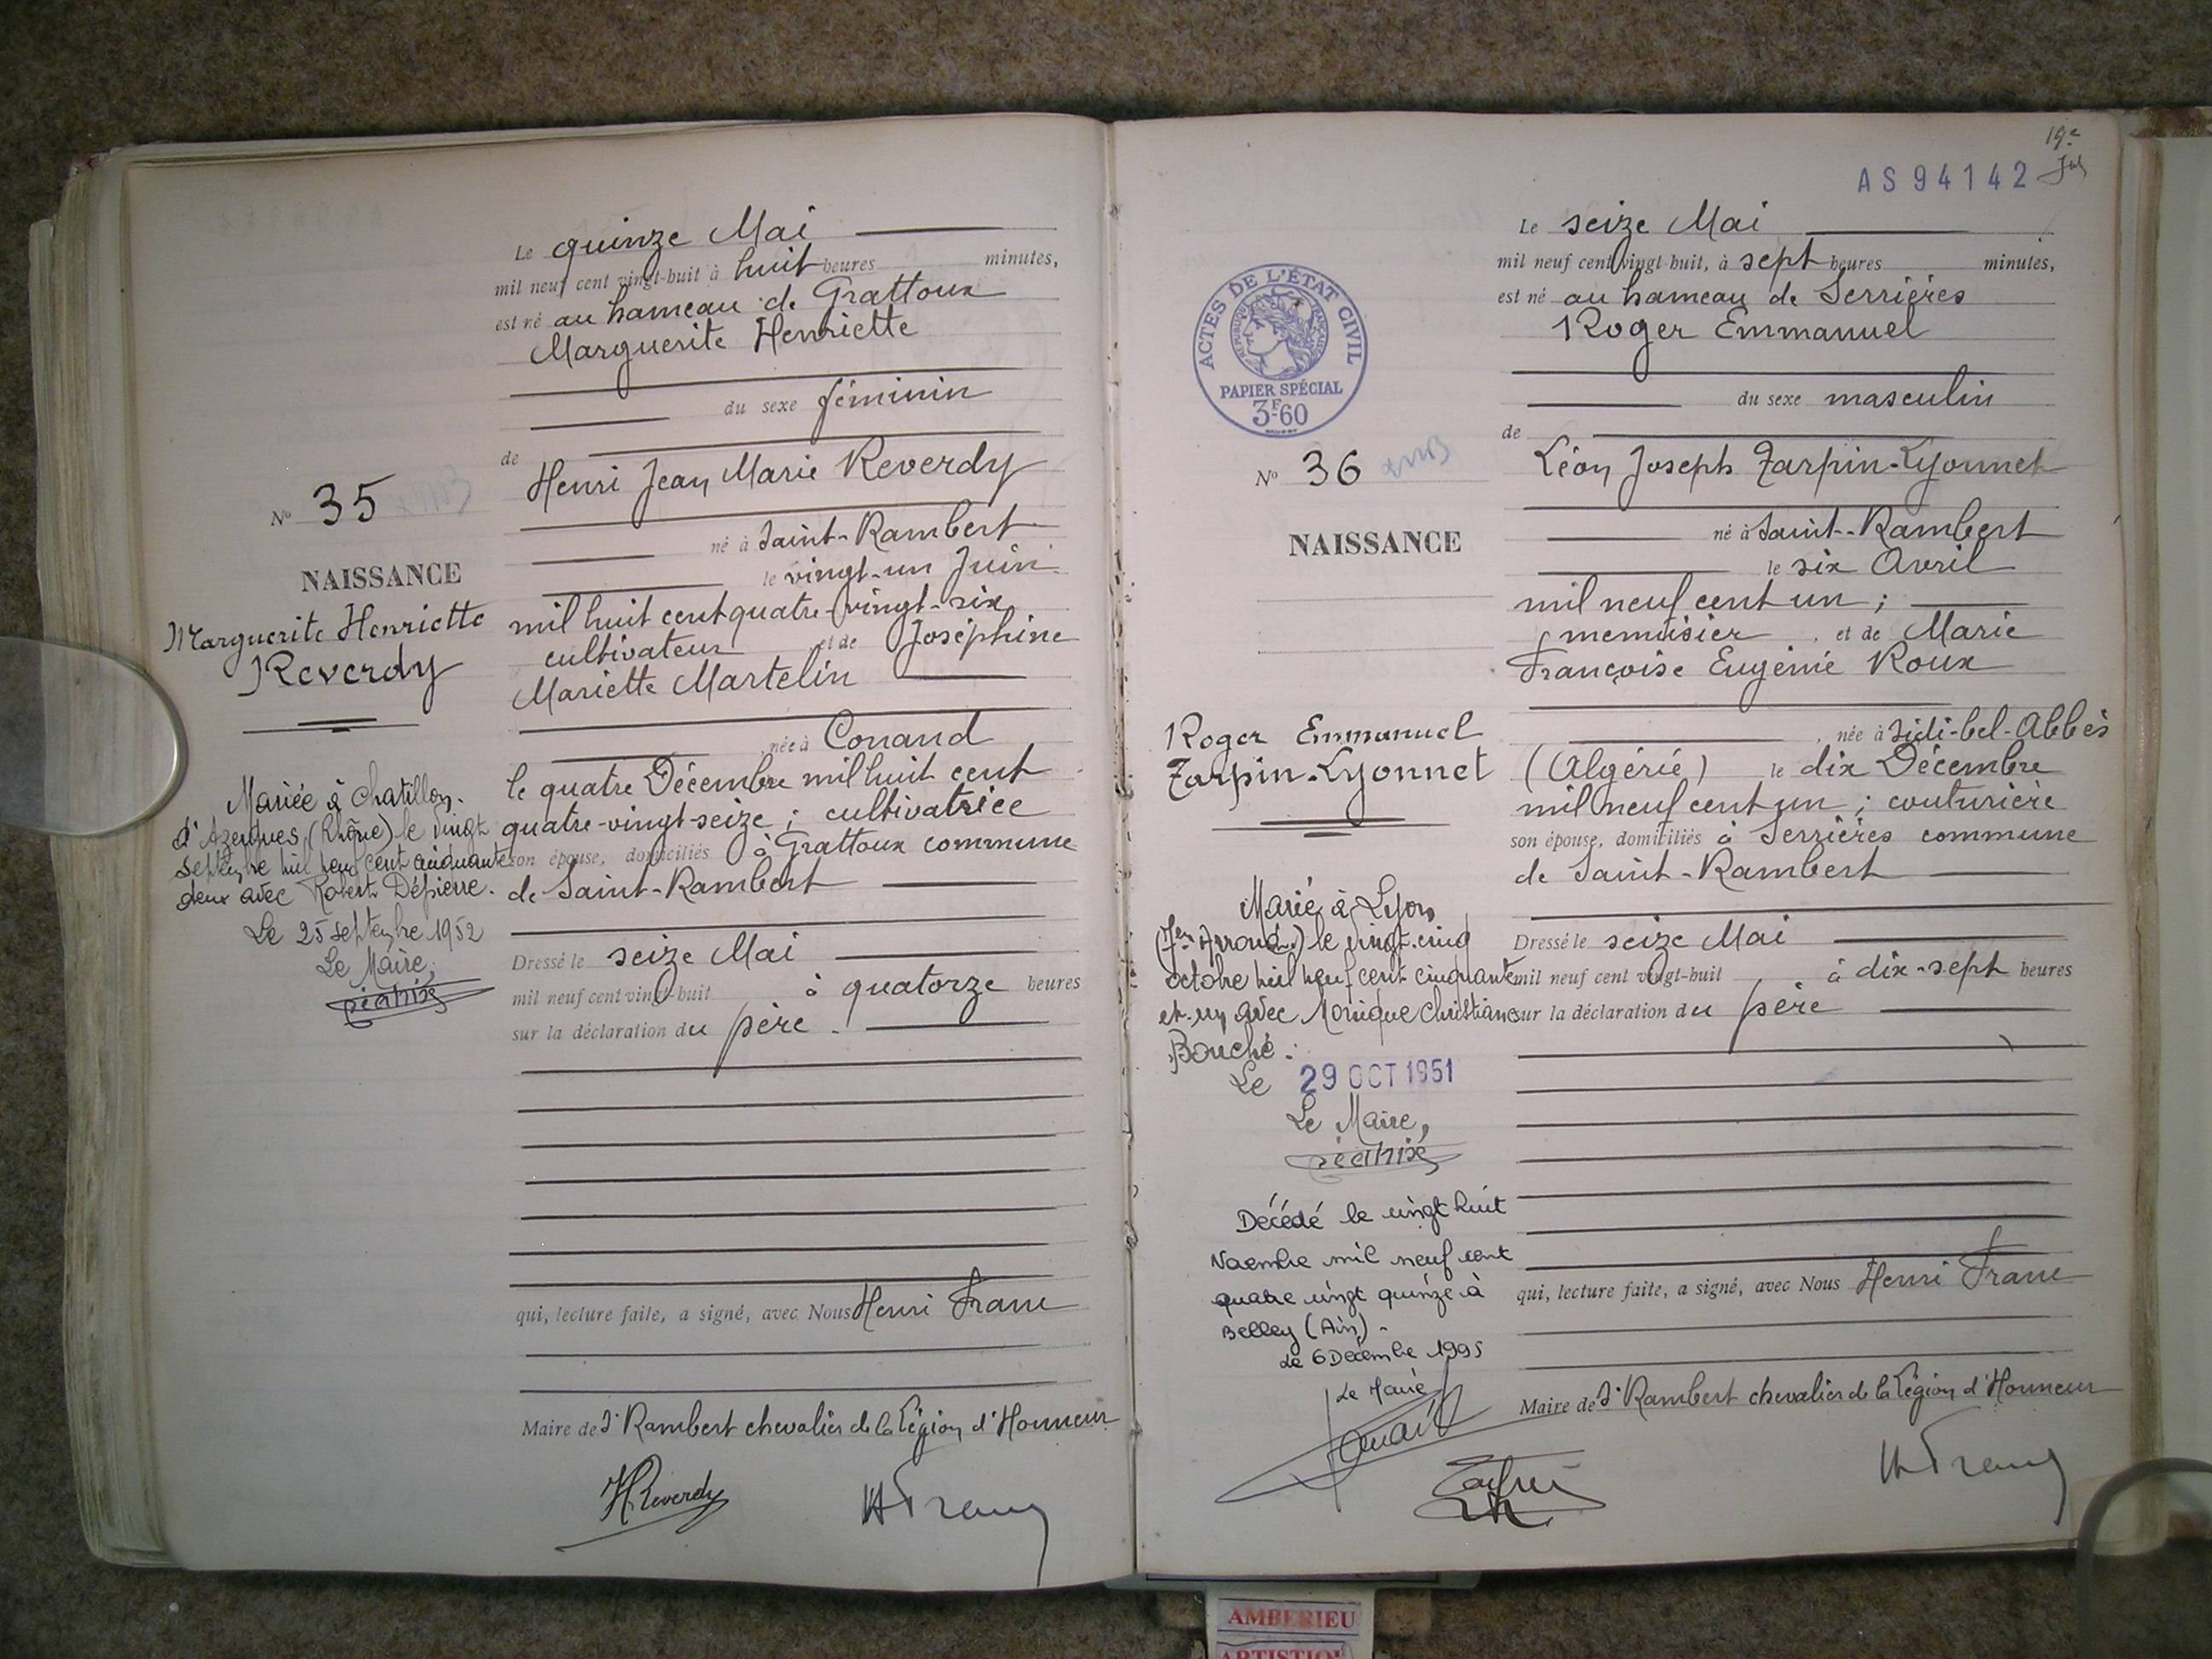 Le quinze Mai
mil neuf cent vingt-huit à huit heures minutes,
est né au hameau de Grattoux
Marguerite Henriette
du sexe féminin
de
Henri Jean Marie Reverdy
né à Saint-Rambert
le vingt-un Juin
mil huit cent quatre-vingt-six
cultivateur et de Joséphine
Mariette Martelin
née à Conand
le quatre Décembre mil huit cent
quatre-vingt-seize ; cultivatrice
son épouse, domiciliés à Grattoux commune
de Saint-Rambert
Dressé le seize Mai
mil neuf cent vingt-huit à quatorze heures
sur la déclaration du père.
qui, lecture faite, a signé, avec Nous Henri Franc
Maire de St Rambert chevalier de la Légion d'Honneur
HReverdy
HFranc
No 35
NAISSANCE
Marguerite Henriette
Reverdy
Mariée à Chatillon-
d'Azergues (Rhône) le vingt
septembre mil neuf cent cinquante
deux avec Robert Dépierre.
Le 25 septembre 1952
Le Maire,
19e
AS 94142
Le seize Mai
mil neuf cent vingt-huit, à sept heures minutes,
est né au hameau de Serrières
Roger Emmanuel
du sexe masculin
de
Léon Joseph Zarpin-Lyonnet
né à Saint-Rambert
le six Avril
mil neuf cent un ;
menuisier , et de Marie
Françoise Eugénie Roux
, née à Sidi-bel-Abbès
(Algérie) le dix Décembre
mil neuf cent un ; couturière
son épouse, domiciliés à Serrières commune
de Saint-Rambert
Dressé le seize Mai
mil neuf cent vingt-huit à dix-sept heures
sur la déclaration du père
qui, lecture faite, a signé, avec Nous Henri Franc
Maire de St Rambert chevalier de la Légion d'Honneur
HFranc
ACTES DE L'ÉTAT CIVIL
RÉPUBLIQUE FRANÇAISE
PAPIER SPÉCIAL
3F60
No 36
NAISSANCE
Roger Emmanuel
Zarpin-Lyonnet
Marié à Lyon
le vingt-cinq
octobre mil neuf cent cinquante
et-un avec Monique Christiane
Bouché.
Le 29 OCT 1951
Le Maire,
Décédé le vingt huit
Novembre mil neuf cent
quatre vingt quinze à
Belley (Ain).
Le 6 Décembre 1995
Le Maire
AMBERIEU